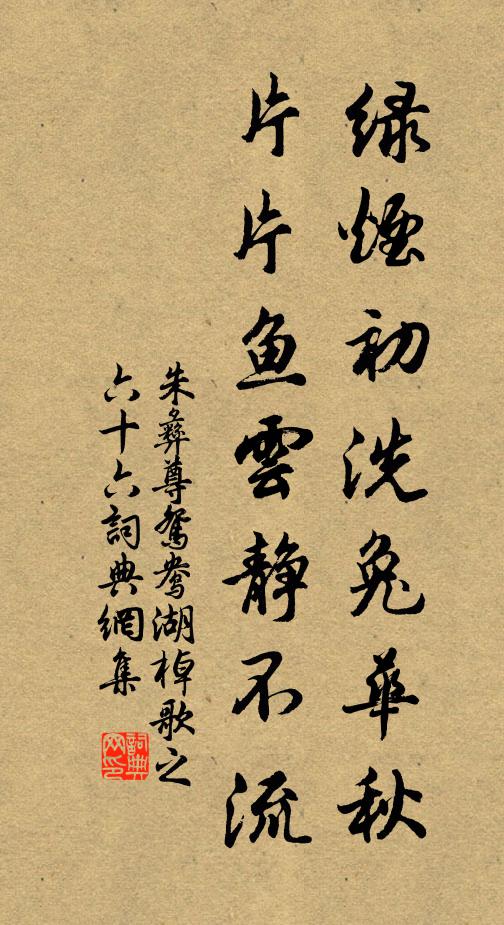 绿煙初洗兔華秋
片片鱼雲静不流
朱彝尊鸳鸯湖棹歌之
六十六詞典網集
詞典
网印